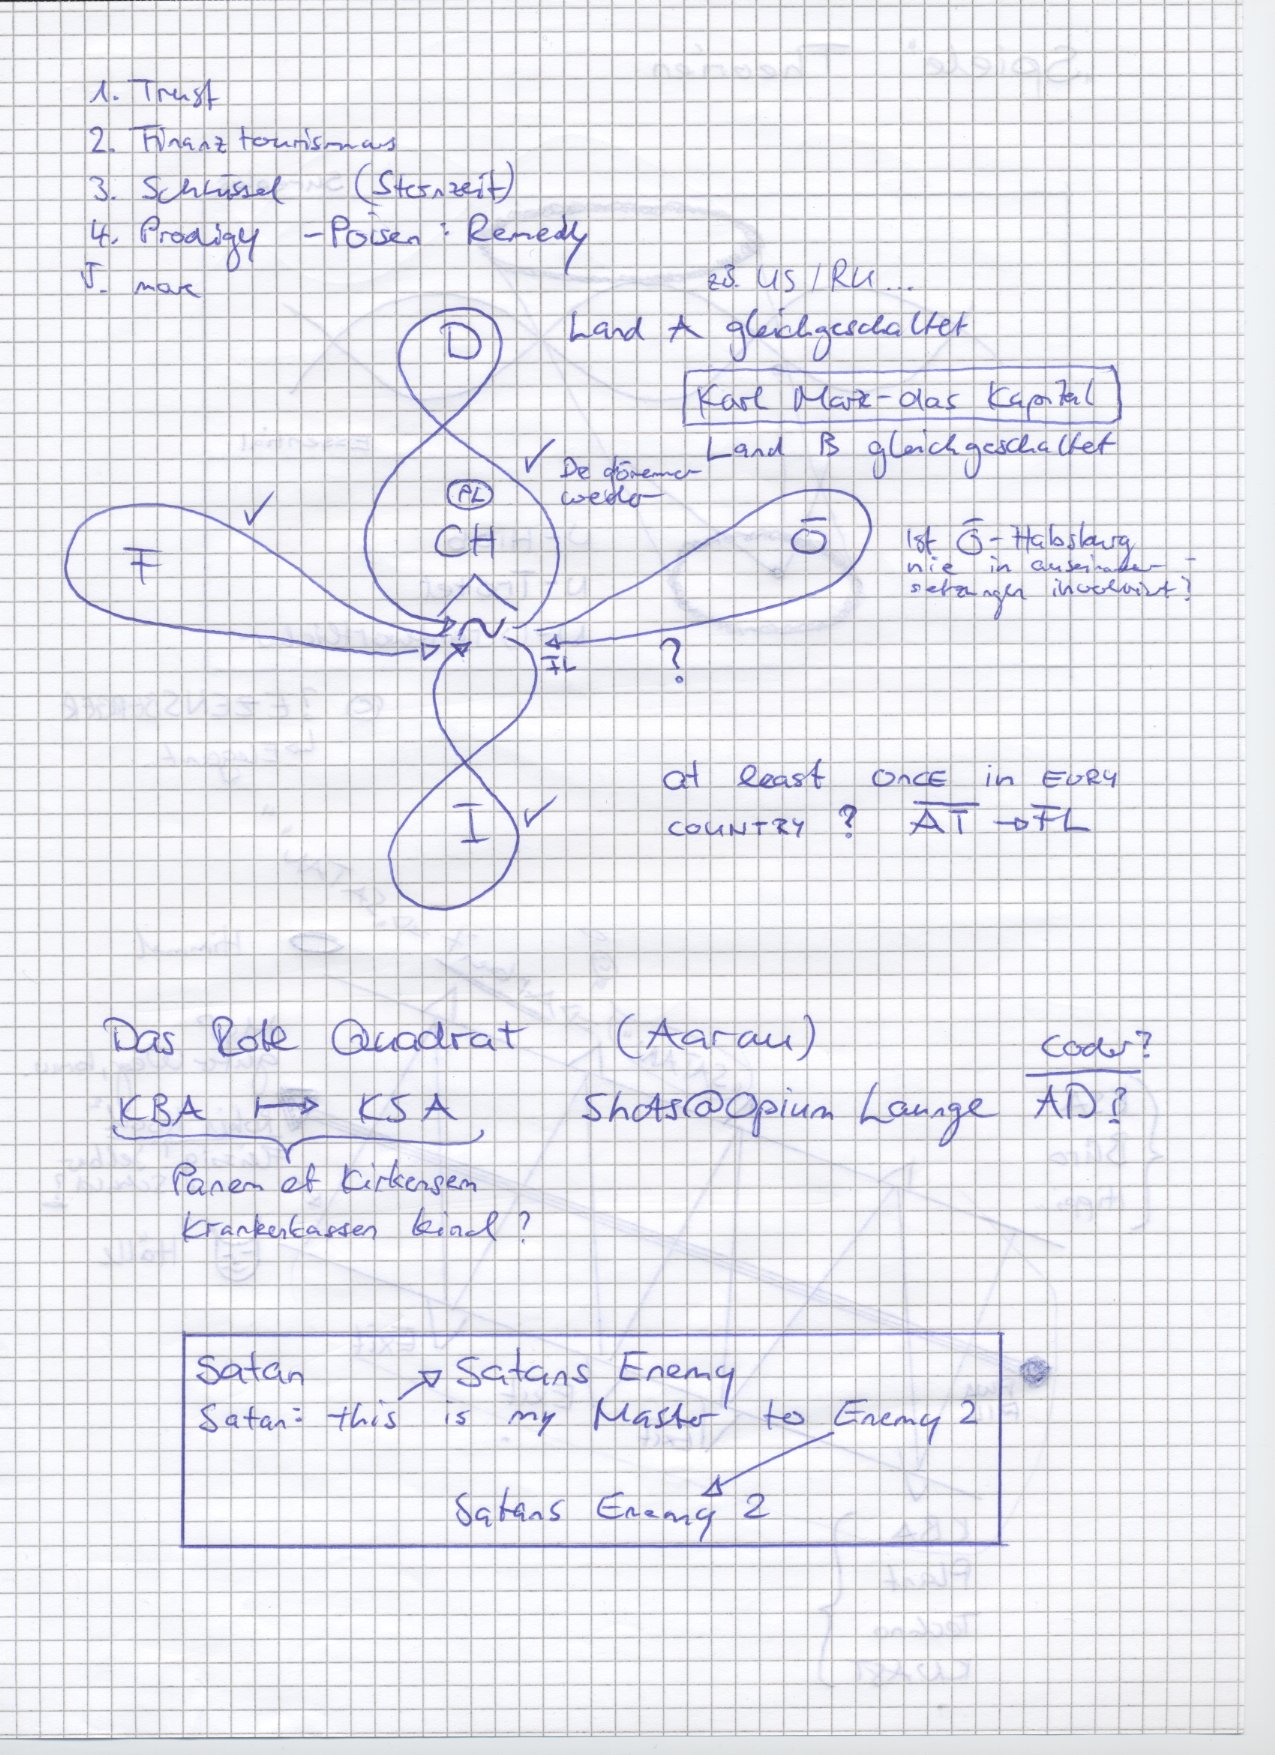 1. Trust
2. Finanztourismus
3. Schlüssel (Sternzeit)
4. Prodigy - Poisen : Remedy
5. more
zB. US / RU ...
Land A gleichgeschaltet
Karl Marx - das Kapital
Land B gleichgeschaltet
D
De
PL
CH
F
Ö
Ist Ö - Habsburg
nie in auseinander-
setzungen involviert?
FL
?
I
at least ONCE in EVRY
COUNTRY ? AT → FL
Das Rote Quadrat (Aarau)
Coder?
KBA ↦ KSA Shots@Opium Launge AD?
Panem et Kirkensem
Krankenkassen kind?
Satan → Satans Enemy
Satan: this is my Master to Enemy 2
Satans Enemy 2